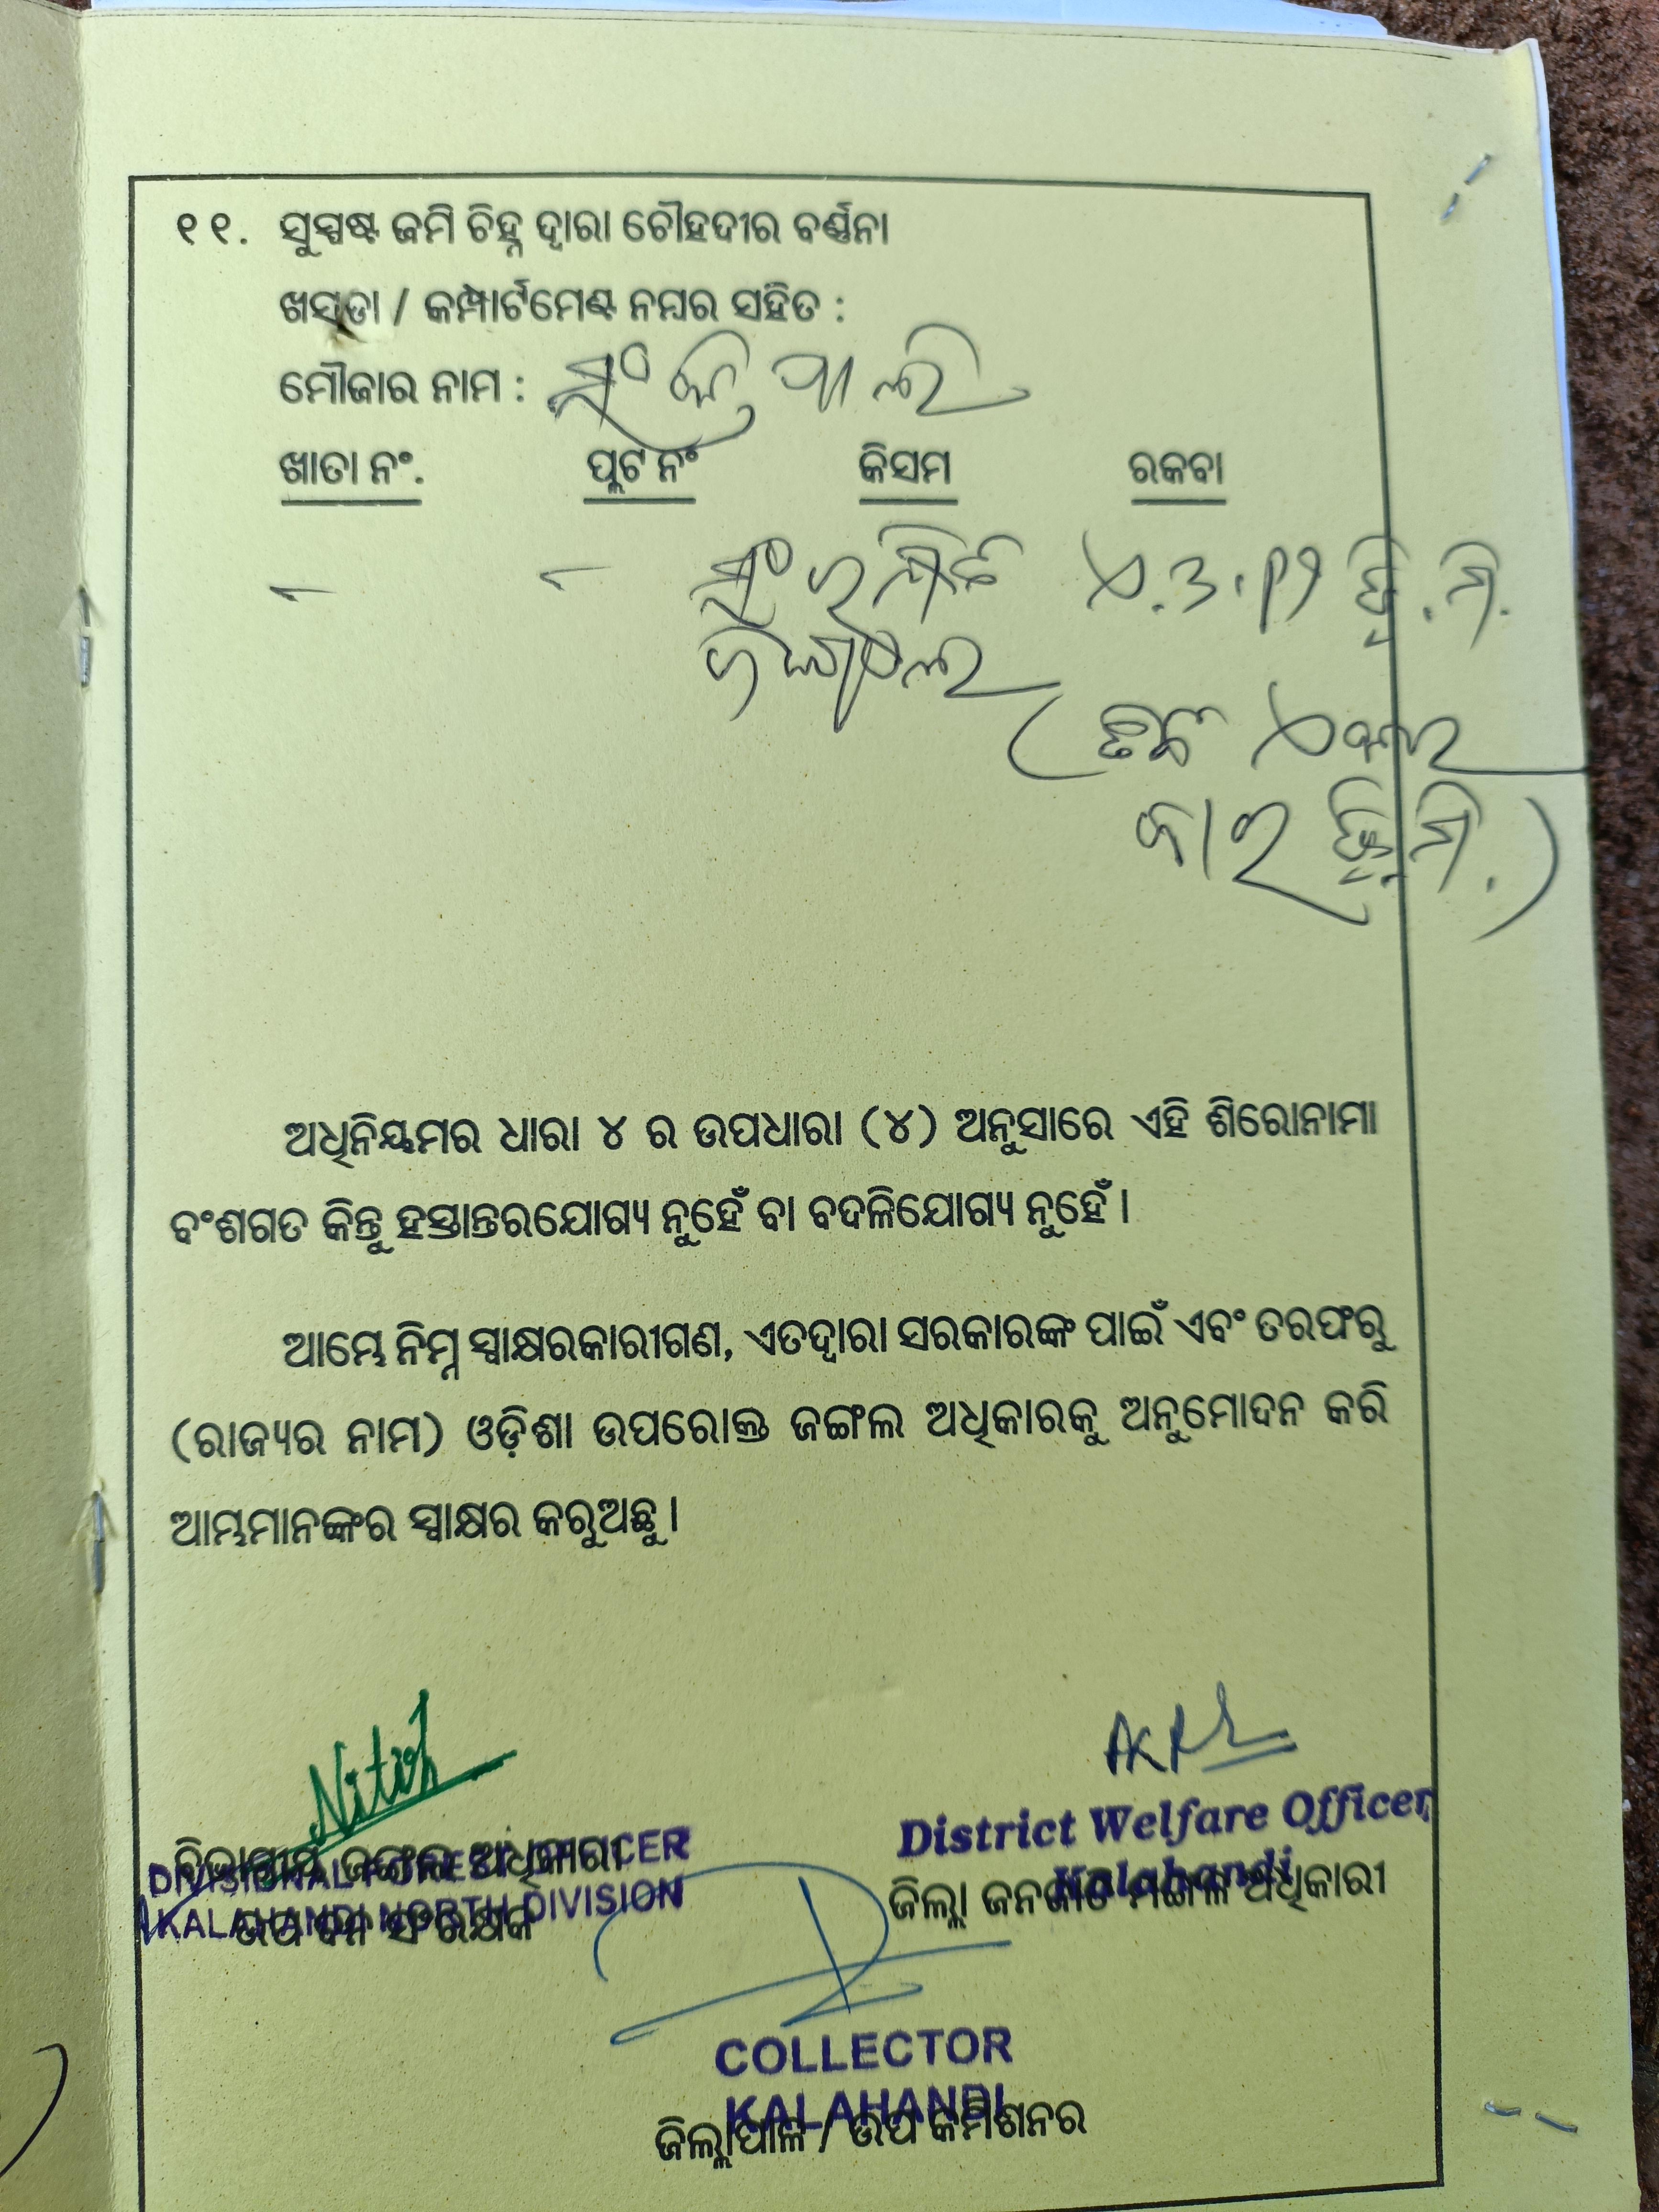 ୧୧. ସୁସ୍ପଷ୍ଟ ଜମି ଚିହ୍ନ ଦ୍ୱାରା ଚୌହଦୀର ବର୍ଣ୍ଣନା
ଖସଡା / କମ୍ପାର୍ଟମେଣ୍ଟ ନମ୍ବର ସହିତ :
ମୌଜାର ନାମ :
ଖାତା ନଂ. ପ୍ଲଟ ନଂ କିସମ ରକବା
– –
ଅଧିନିୟମର ଧାରା ୪ ର ଉପଧାରା (୪) ଅନୁସାରେ ଏହି ଶିରୋନାମା
ବଂଶଗତ କିନ୍ତୁ ହସ୍ତାନ୍ତରଯୋଗ୍ୟ ନୁହେଁ ବା ବଦଳିଯୋଗ୍ୟ ନୁହେଁ ।
ଆମ୍ଭେ ନିମ୍ନ ସ୍ୱାକ୍ଷରକାରୀଗଣ, ଏତଦ୍ୱାରା ସରକାରଙ୍କ ପାଇଁ ଏବଂ ତରଫରୁ
(ରାଜ୍ୟର ନାମ) ଓଡ଼ିଶା ଉପରୋକ୍ତ ଜଙ୍ଗଲ ଅଧିକାରକୁ ଅନୁମୋଦନ କରି
ଆମ୍ଭମାନଙ୍କର ସ୍ୱାକ୍ଷର କରୁଅଛୁ ।
Nitish
District Welfare Officer
Kalahandi
ବିଭାଗୀୟ ଜଙ୍ଗଲ ଅଧିକାରୀ
DIVISIONAL FOREST OFFICER
KALAHANDI NORTH DIVISION
ଉପ ବନ ସଂରକ୍ଷକ
ଜିଲ୍ଲା ଜନଜାତି ମଙ୍ଗଳ ଅଧିକାରୀ
COLLECTOR
KALAHANDI
ଜିଲ୍ଲାପାଳ / ଉପ କମିଶନର